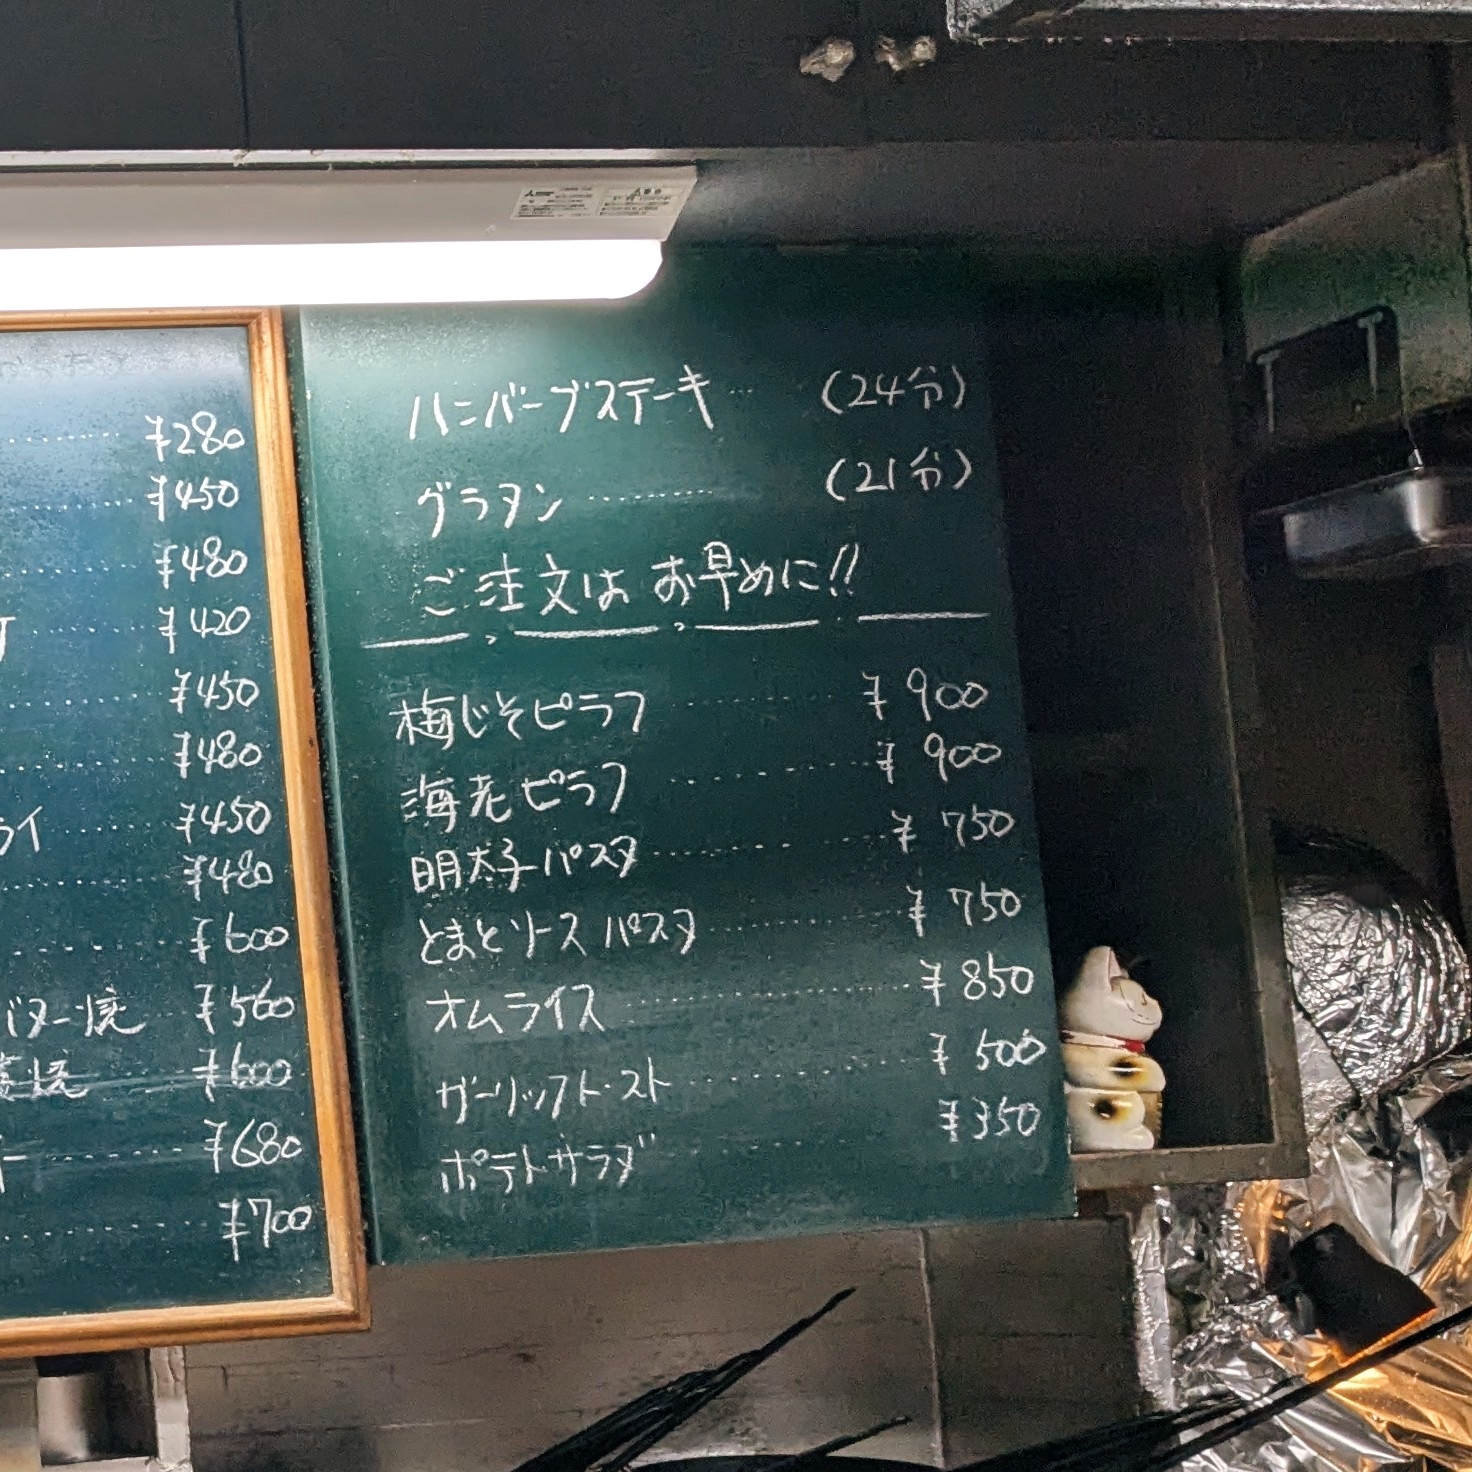 ¥280
¥450
¥480
¥420
¥450
¥480
ライ ¥450
¥480
¥600
バター焼 ¥560
焼 ¥600
ー ¥680
¥700
ハンバーブステーキ (24分)
グラタン (21分)
ご注文は お早めに!!
梅じそピラフ ¥900
海老ピラフ ¥900
明太子パスタ ¥750
とまとソースパスタ ¥750
オムライス ¥850
ガーリックトースト ¥500
ポテトサラダ ¥350